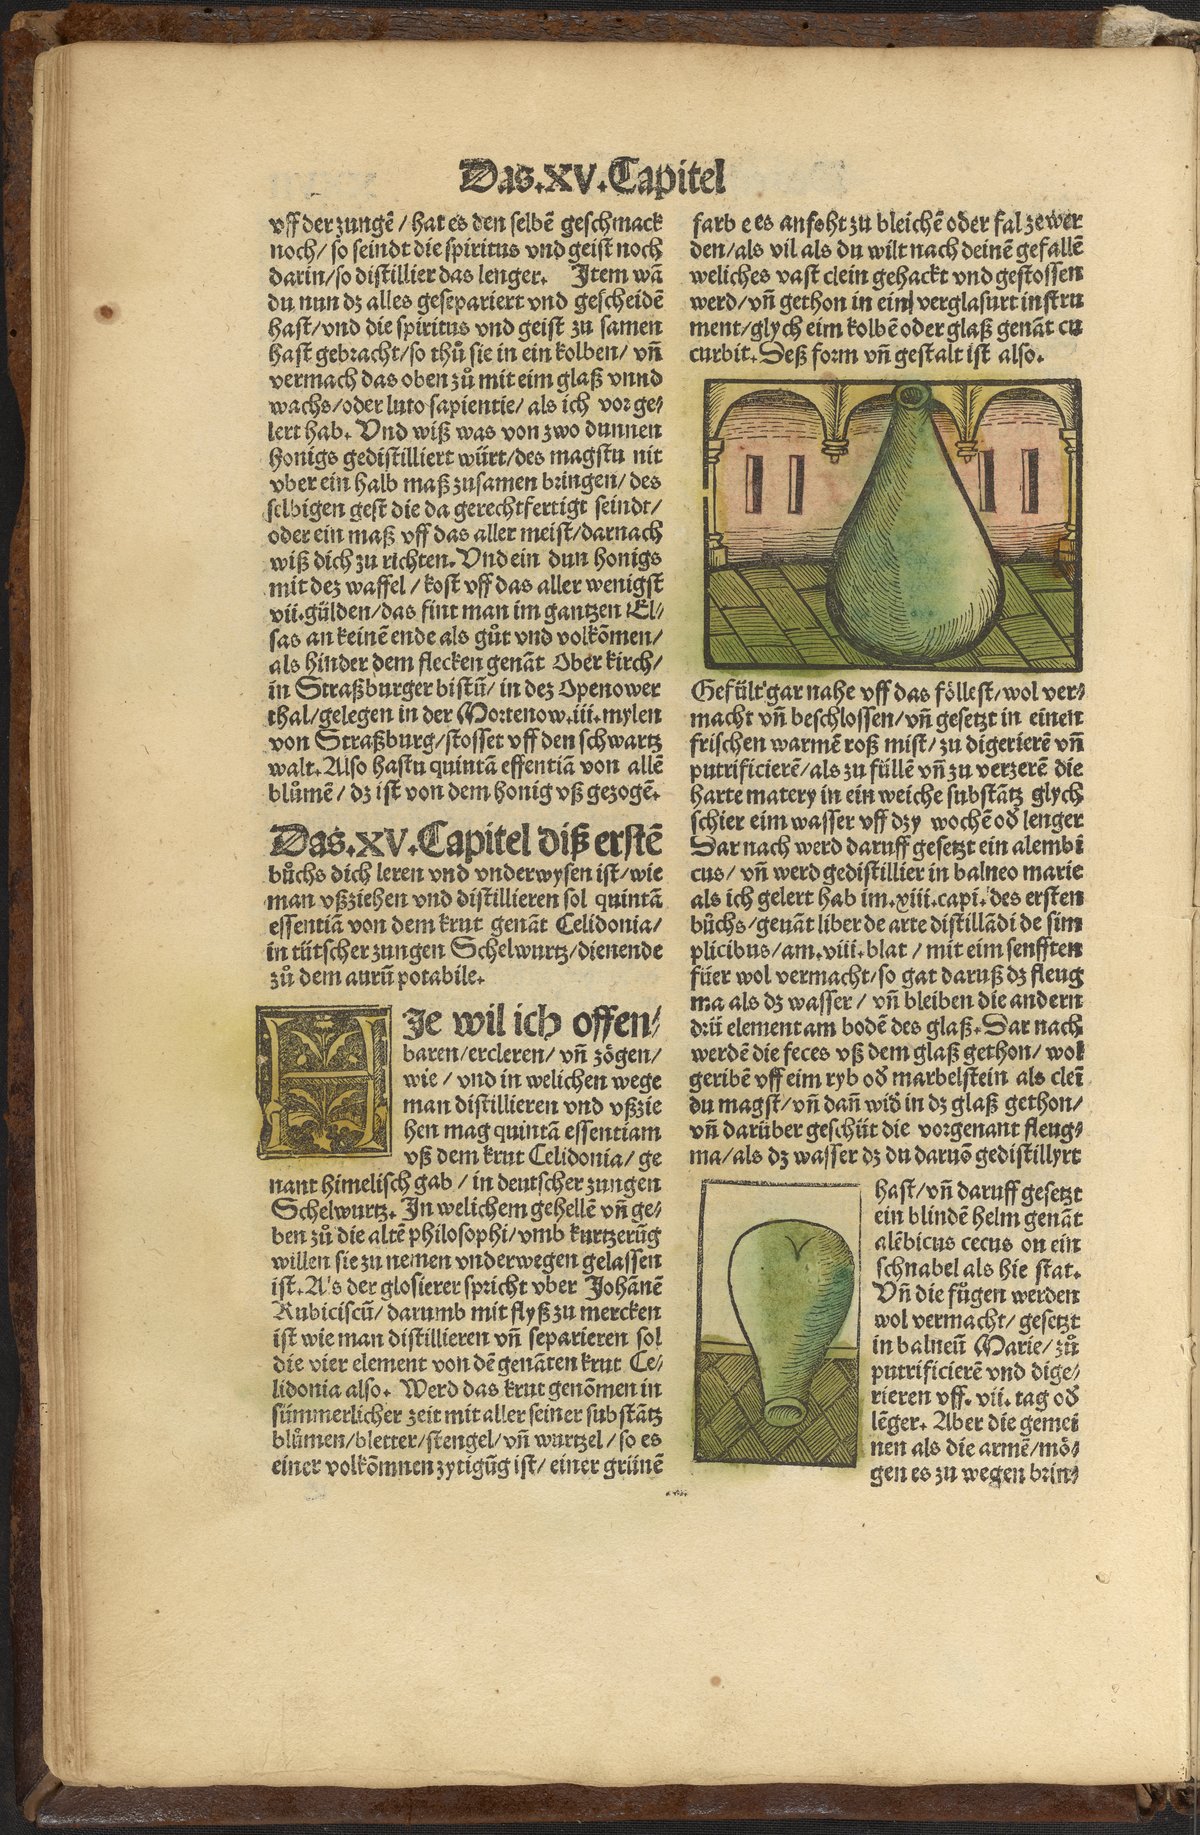 Das.XV.Capitel
vff der zungē/hat es den selbē geschmack
noch/so seindt die spiritus vnd geist noch
darin/so distillier das lenger. Item wā
du nun dz alles gesepariert vnd gescheidē
hast/vnd die spiritus vnd geist zu samen
hast gebracht/so thů sie in ein kolben/vñ
vermach das oben zů mit eim glaß vnnd
wachs/oder luto sapientie/als ich vor ge⸗
lert hab. Vnd wiß was von zwo dunnen
honigs gedistilliert würt/des magstu nit
vber ein halb maß zusamen bringen/des
selbigen gest die da gerechtfertigt seindt/
oder ein maß vff das aller meist/darnach
wiß dich zu richten. Vnd ein dun honigs
mit dez waffel/kost vff das aller wenigst
vii.gülden/das fint man im gantzen El⸗
sas an keinē ende als gůt vnd volkōmen/
als hinder dem flecken genāt Ober kirch/
in Straßburger bistū/in dez Openower
thal/gelegen in der Mortenow.iii.mylen
von Straßburg/stosset vff den schwartz
walt. Also hastu quintā essentiā von allē
blůmē/dz ist von dem honig vß gezogē.
Das.XV.Capitel diß erstē
bůchs dich leren vnd vnderwysen ist/wie
man vßziehen vnd distillieren sol quintā
essentiā von dem krut genāt Celidonia/
in tütscher zungen Schelwurtz/dienende
zů dem aurū potabile.
HJe wil ich offen⸗
baren/ercleren/vñ zögen/
wie/vnd in welichen wege
man distillieren vnd vßzie
hen mag quintā essentiam
vß dem krut Celidonia/ge
nant himelisch gab/in deutscher zungen
Schelwurtz. In welichem gehellē vñ ge⸗
ben zů die altē philosophi/vmb kurtzerūg
willen sie zu nemen vnderwegen gelassen
ist. Als der glosierer spricht vber Johānē
Rubiciscū/darumb mit flyß zu mercken
ist wie man distillieren vñ separieren sol
die vier element von dē genāten krut Ce⸗
lidonia also. Werd das krut genōmen in
sümmerlicher zeit mit aller seiner substātz
blůmen/bletter/stengel/vñ wurtzel/so es
einer volkōmnen zytigūg ist/einer grünē
farb e es anfoht zu bleichē oder fal ze wer
den/als vil als du wilt nach deinē gefallē
weliches vast clein gehackt vnd gestossen
werd/vñ gethon in ein verglasurt instru
ment/glych eim kolbē oder glaß genāt cu
curbit. Deß form vñ gestalt ist also.
Gefült gar nahe vff das föllest/wol ver⸗
macht vñ beschlossen/vñ gesetzt in einen
frischen warmē roß mist/zu digerierē vñ
putrificierē/als zu füllē vñ zu verzerē die
harte matery in ein weiche substātz glych
schier eim wasser vff dzy wochē oð lenger
Dar nach werd daruff gesetzt ein alembi
cus/vñ werd gedistillier in balneo marie
als ich gelert hab im.xiii.capi.des ersten
bůchs/genāt liber de arte distillādi de sim
plicibus/am.viii.blat/mit eim senfften
füer wol vermacht/so gat daruß dz fleug
ma als dz wasser/vñ bleiben die andern
drü element am bodē des glaß. Dar nach
werdē die feces vß dem glaß gethon/wol
geribē vff eim ryb oð marbelstein als cleī
du magst/vñ dañ wið in dz glaß gethon/
vñ darüber geschüt die vorgenant fleug⸗
ma/als dz wasser dz du daruō gedistillyrt
hast/vñ daruff gesetzt
ein blindē helm genāt
alēbicus cecus on ein
schnabel als hie stat.
Vñ die fůgen werden
wol vermacht/gesetzt
in balneū Marie/zů
putrificierē vnd dige⸗
rieren vff.vii.tag oð
lēger. Aber die gemei
nen als die armē/mö⸗
gen es zu wegen brin⸗